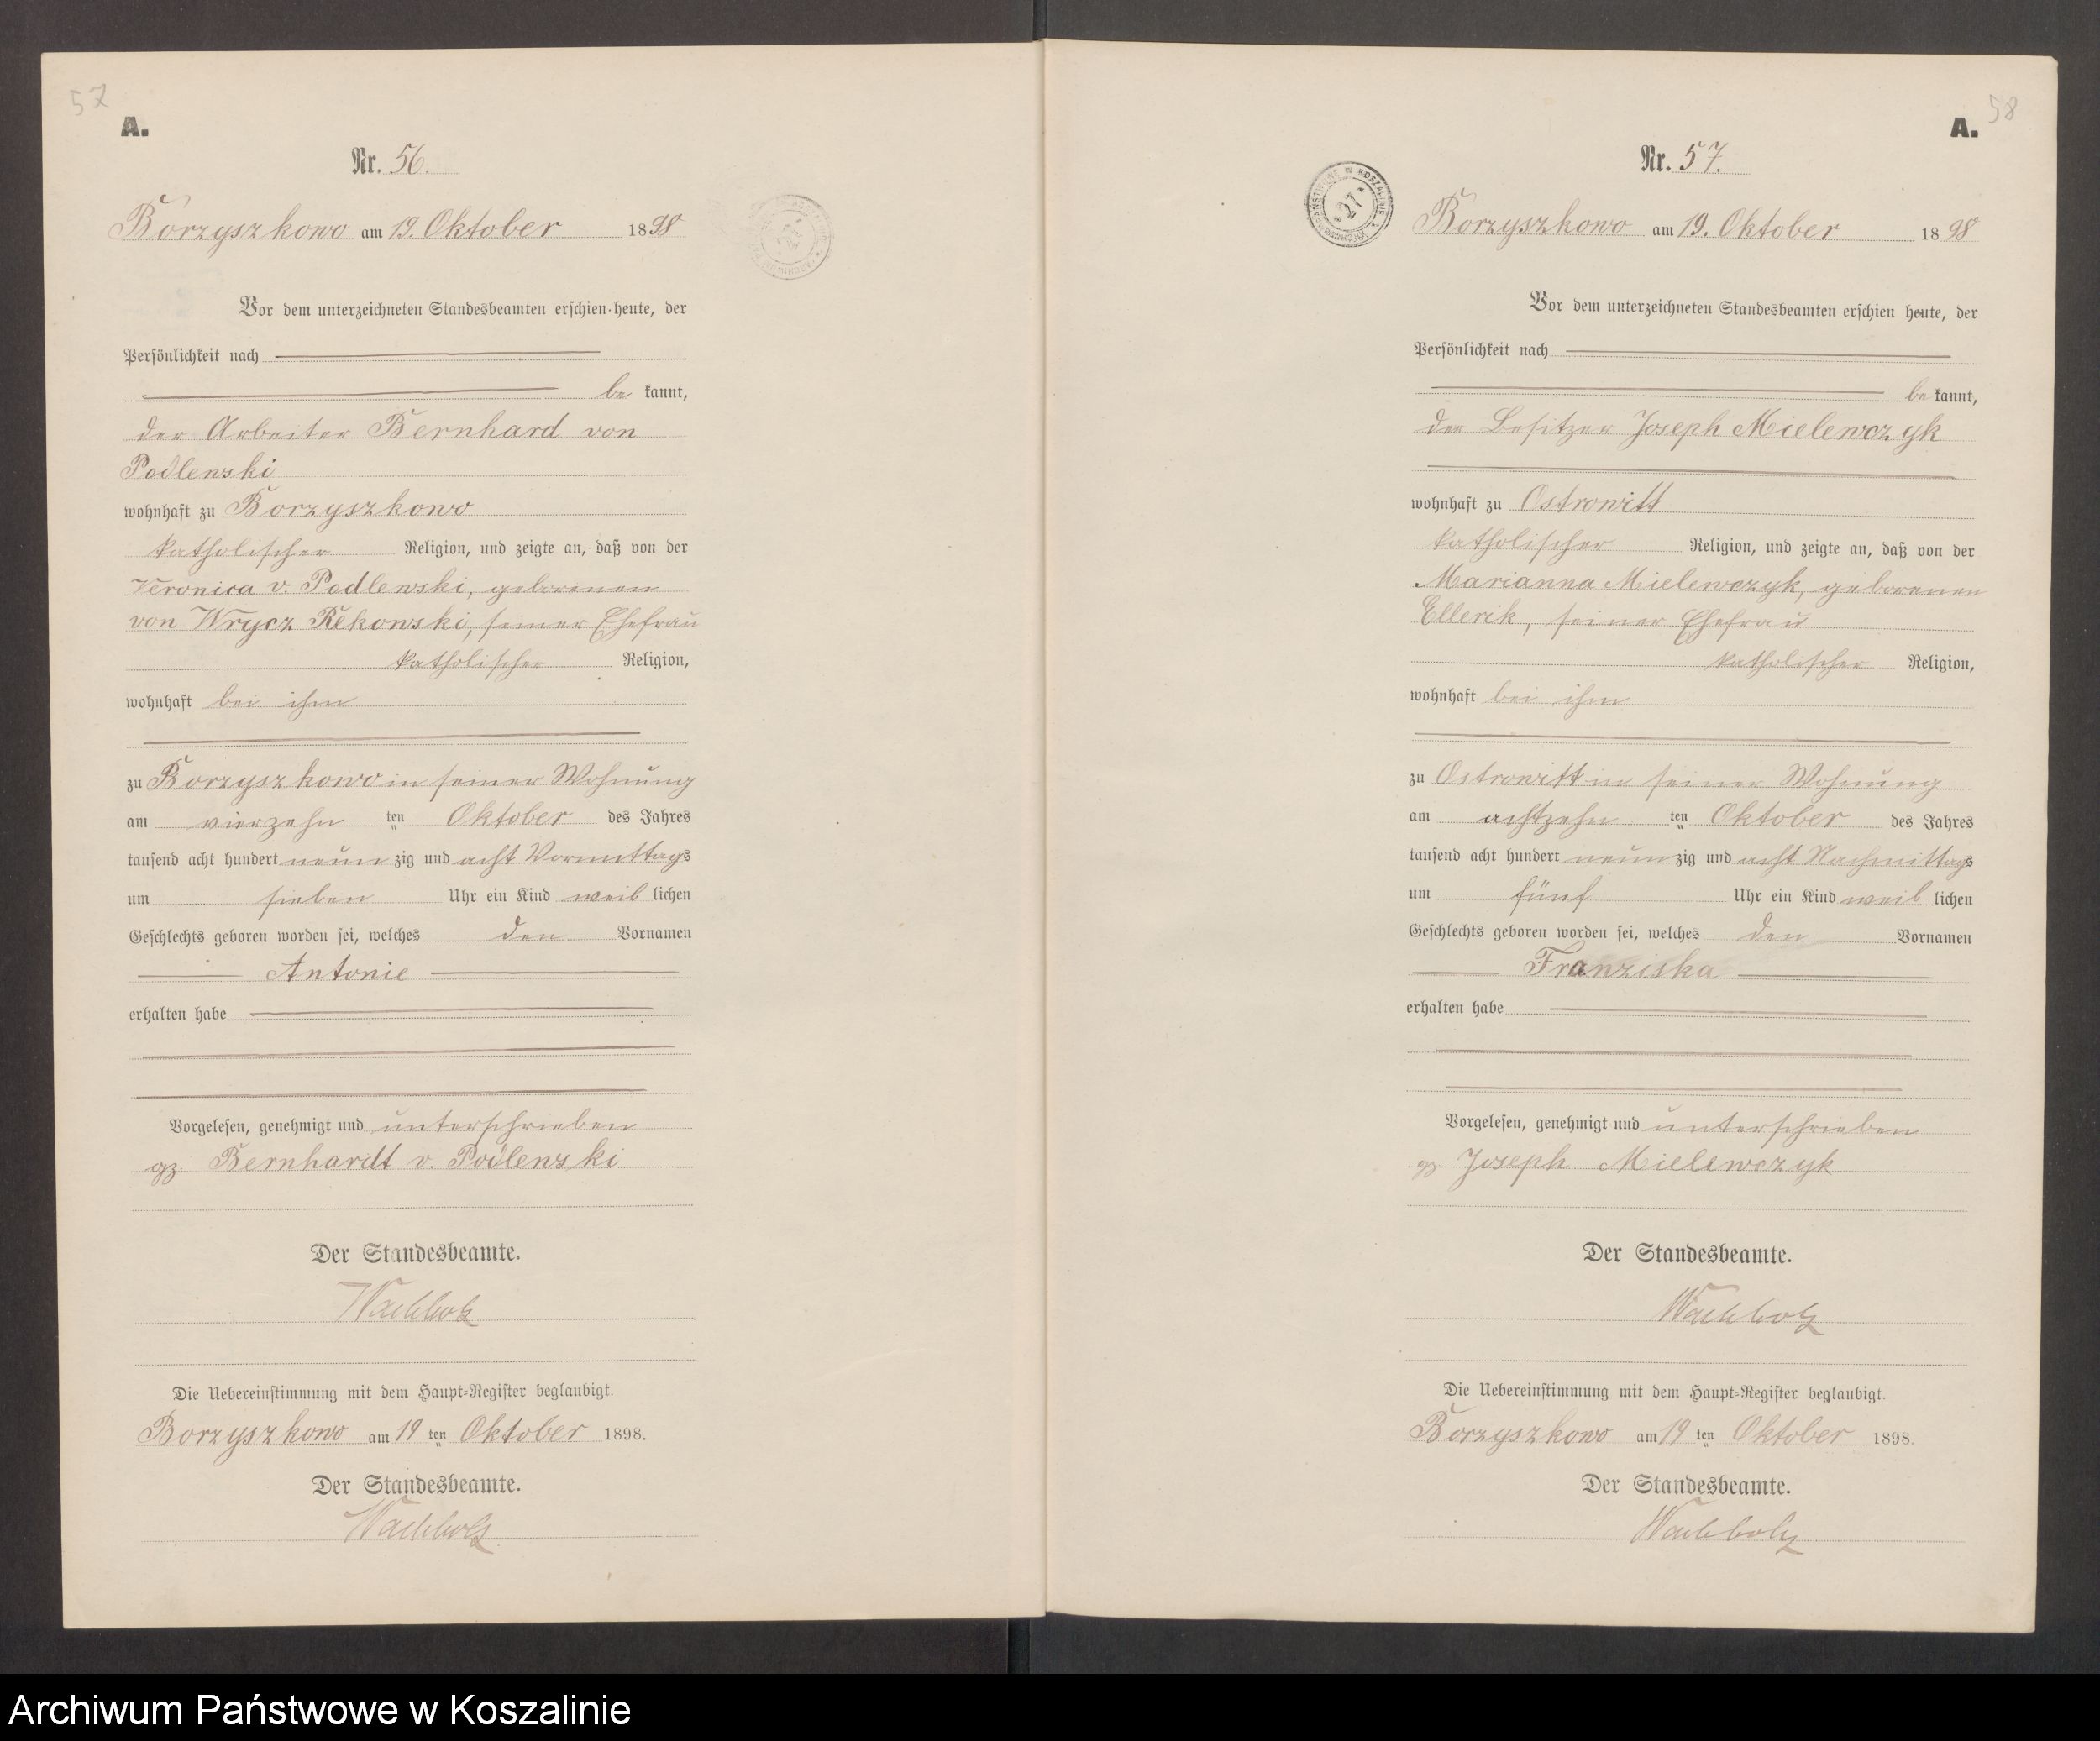 57
A.
Nr. 56.
Borzyszkowo am 19. Oktober 1898
Vor dem unterzeichneten Standesbeamten erschien heute, der
Persönlichkeit nach
be kannt,
der Arbeiter Bernhard von
Podlenski
wohnhaft zu Borzyszkowo
katholischer Religion, und zeigte an, daß von der
Veronica v. Podlewski, geborenen
von Wrycz Rekowski, seiner Ehefrau
katholischer Religion,
wohnhaft bei ihm
zu Borzyszkowo in seiner Wohnung
am vierzehn ten Oktober des Jahres
tausend acht hundert neun zig und acht Vormittags
um sieben Uhr ein Kind weib lichen
Geschlechts geboren worden sei, welches den Vornamen
Antonie
erhalten habe
Vorgelesen, genehmigt und unterschrieben
gz. Bernhardt v. Podlenski
Der Standesbeamte.
Wachholz
Die Uebereinstimmung mit dem Haupt-Register beglaubigt.
Borzyszkowo am 19 ten Oktober 1898.
Der Standesbeamte.
Wachholz
58
A.
Nr. 57.
27
Borzyszkowo am 19. Oktober 1898
Vor dem unterzeichneten Standesbeamten erschien heute, der
Persönlichkeit nach
be kannt,
der Besitzer Joseph Mielewczyk
wohnhaft zu Ostrowitt
katholischer Religion, und zeigte an, daß von der
Marianna Mielewczyk, geborenen
Ellerik, seiner Ehefrau
katholischer Religion,
wohnhaft bei ihm
zu Ostrowitt in seiner Wohnung
am achtzehn ten Oktober des Jahres
tausend acht hundert neun zig und acht Nachmittags
um fünf Uhr ein Kind weib lichen
Geschlechts geboren worden sei, welches den Vornamen
Franziska
erhalten habe
Vorgelesen, genehmigt und unterschrieben
gz Joseph Mielewczyk
Der Standesbeamte.
Wachholz
Die Uebereinstimmung mit dem Haupt-Register beglaubigt.
Borzyszkowo am 19 ten Oktober 1898.
Der Standesbeamte.
Wachholz
Archiwum Państwowe w Koszalinie